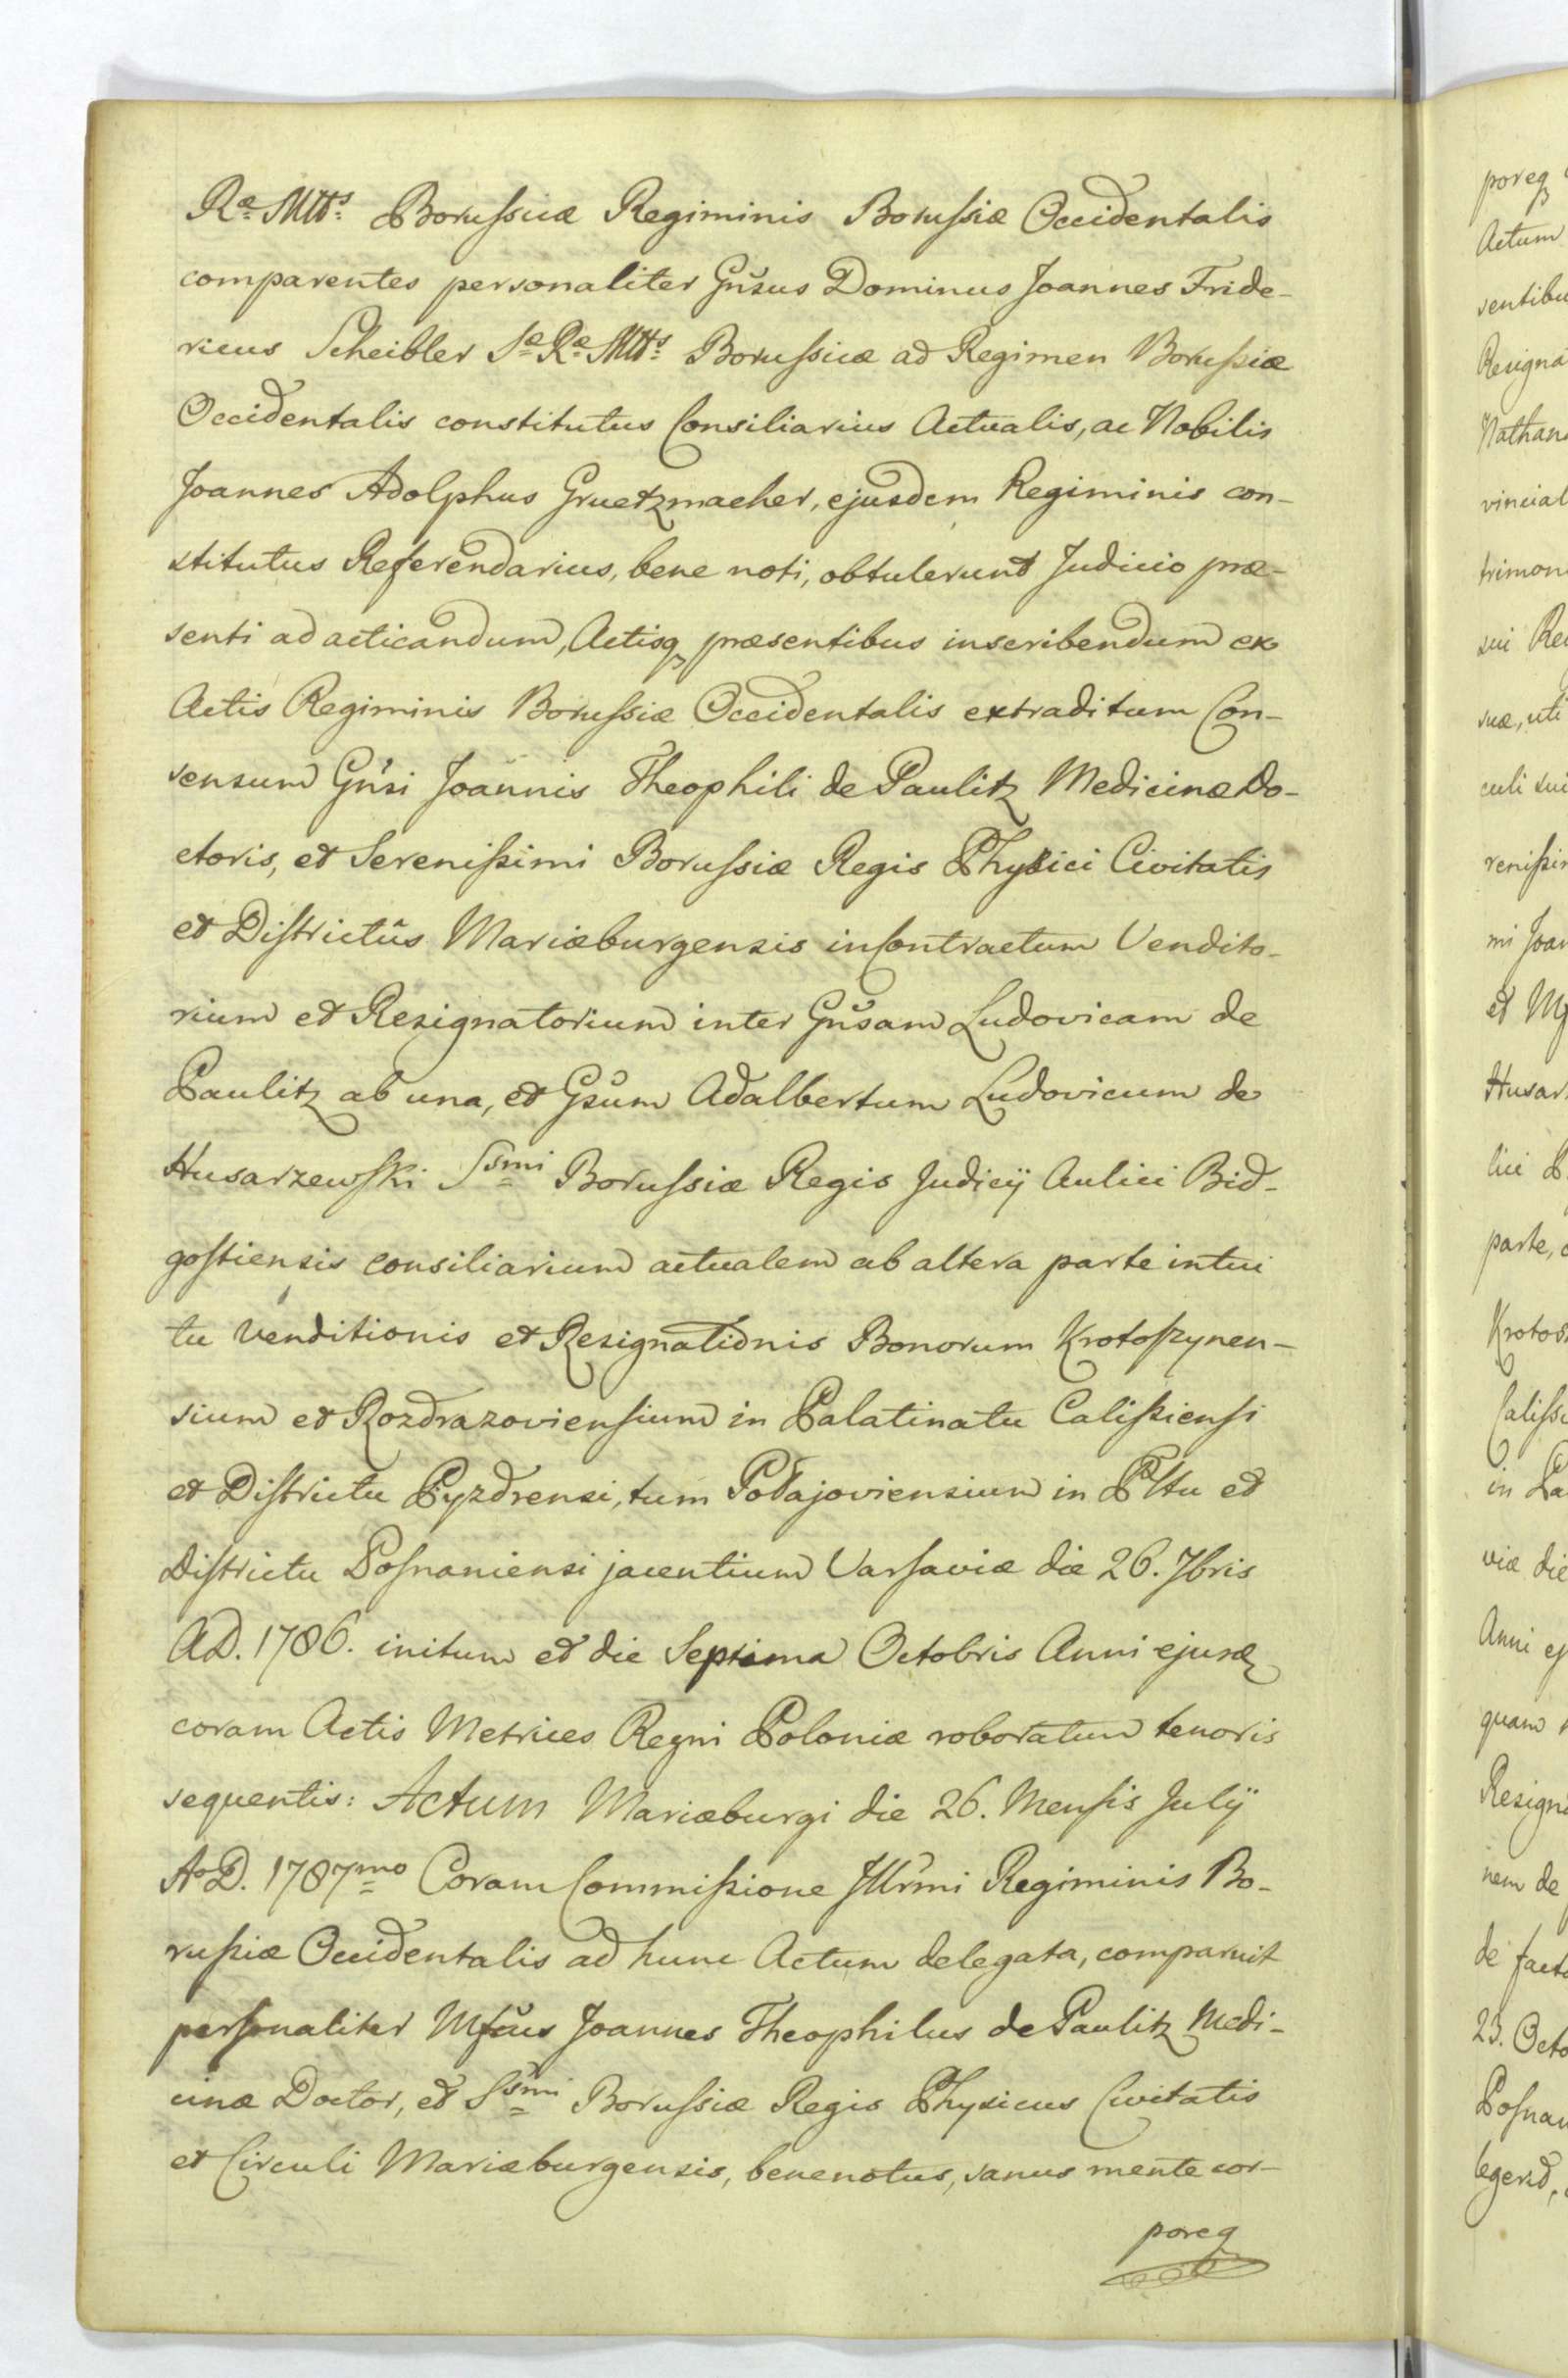 Ræ Mtts Borussicæ Regiminis Borussiæ Occidentalis
comparentes personaliter Gnsus Dominus Joannes Fride-
ricus Scheibler Sæ Ræ Mtts Borussicæ ad Regimen Borussiæ
Occidentalis constitutus Consiliarius Actualis, ac Nobilis
Joannes Adolphus Gruetzmacher, ejusdem Regiminis con-
stitutus Referendarius, bene noti, obtulerunt Judicio præ-
senti ad acticandum, Actisq præsentibus inscribendum ex
Actis Regiminis Borussiæ Occidentalis extraditum Con-
sensum Gnsi Joannis Theophili de Paulitz Medicinæ Do-
ctoris, et Serenissimi Borussiæ Regis Physici Civitatis
et Districtûs Mariæburgensis in Contractum Vendito-
rium et Resignatorium inter Gnsam Ludovicam de
Paulitz ab una, et Gsum Adalbertum Ludovicum de
Husarzewski Ssmi Borussiæ Regis Judicij Aulici Bid-
gostiensis consiliarium actualem ab altera parte intui
tu Venditionis et Resignationis Bonorum Krotoszynen-
sium et Rozdrazoviensium in Palatinatu Calissiensi
et Districtu Pyzdrensi, tum Podajoviensium in Pltu et
Districtu Posnaniensi jacentium Varsaviæ die 26. 7bris
AD. 1786. initum et die Septima Octobris Anni ejusd
coram Actis Metrices Regni Poloniæ roboratum tenoris
sequentis: Actum Mariæburgi die 26. Mensis Julij
Ao D. 1787mo Coram Commissione Illrmi Regiminis Bo-
russiæ Occidentalis ad hunc Actum delegata, comparuit
personaliter Mfcus Joannes Theophilus de Paulitz Medi-
cinæ Doctor, et Ssmi Borussiæ Regis Physicus Civitatis
et Circuli Mariæburgensis, bene notus, sanus mente cor-
poreq
poreq
Actum
sentibu
Resigna
Nathan
vincial
trimon
sui Re
suæ, uti
culi sui
renissi
mi Joan
et
Husar
lici
parte,
Krotos
Caliss
in Pa
viæ die
Anni ej
quam
Resign
nem de
de facto
23. Octo
Posnan